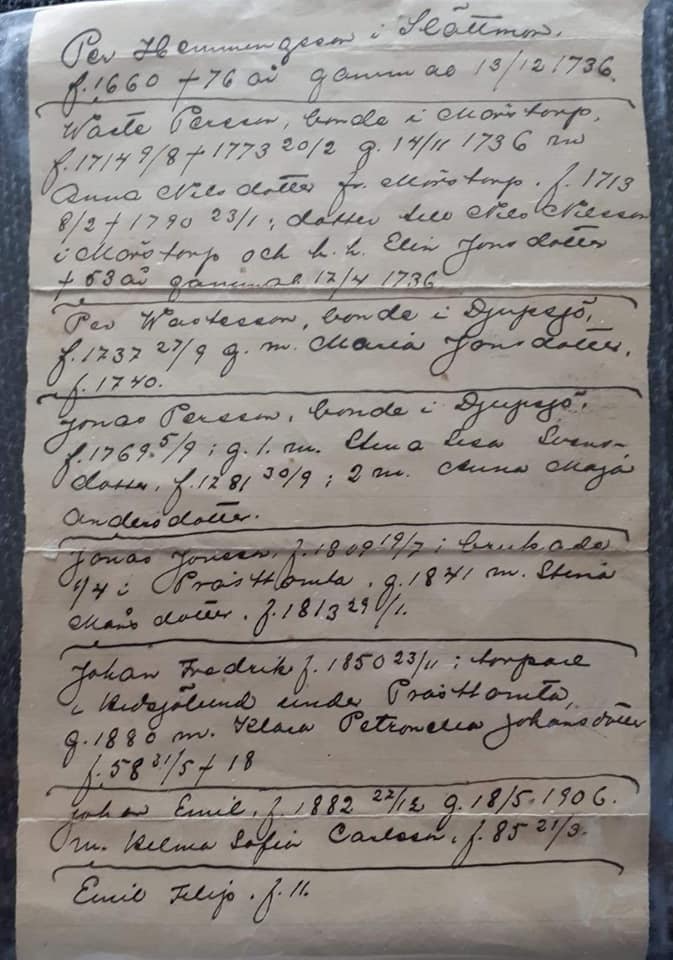 Per Hemmingsson i Slättmon,
f. 1660 + 76 år gammal 13/12 1736.
Waste Persson, bonde i Morstorp,
f. 1714 9/8 + 1773 20/2 g. 14/11 1736 m
Anna Nilsdotter fr. Morstorp. f. 1713
8/2 + 1790 23/1; dotter till Nils Nilsson
i Morstorp och h. h. Elin Jonsdotter
+ 53 år gammal 17/4 1736
Per Wastesson, bonde i Djupsjö,
f. 1737 27/9 g. m. Maria Jonsdotter,
f. 1740.
Jonas Persson, bonde i Djupsjö,
f. 1769 5/9; g. 1. m. Stina Lisa Svens-
dotter, f. 1781 30/9; 2 m. Anna Maja
Andersdotter.
Jonas Jonsson, f. 1809 19/7; brukade
1/4 i Prästtomta, g. 1841 m. Stina
Månsdotter, f. 1813 29/1.
Johan Fredrik f. 1850 23/11; torpare
i under Prästtomta,
g. 1880 m. Klara Petronella Johansdotter
f. 58 31/5 + 18
Johan Emil, f. 1882 22/12 g. 18/5 1906.
m. Hilma Sofia Carlsson, f. 85 21/3.
Emil Filip. f. 11.